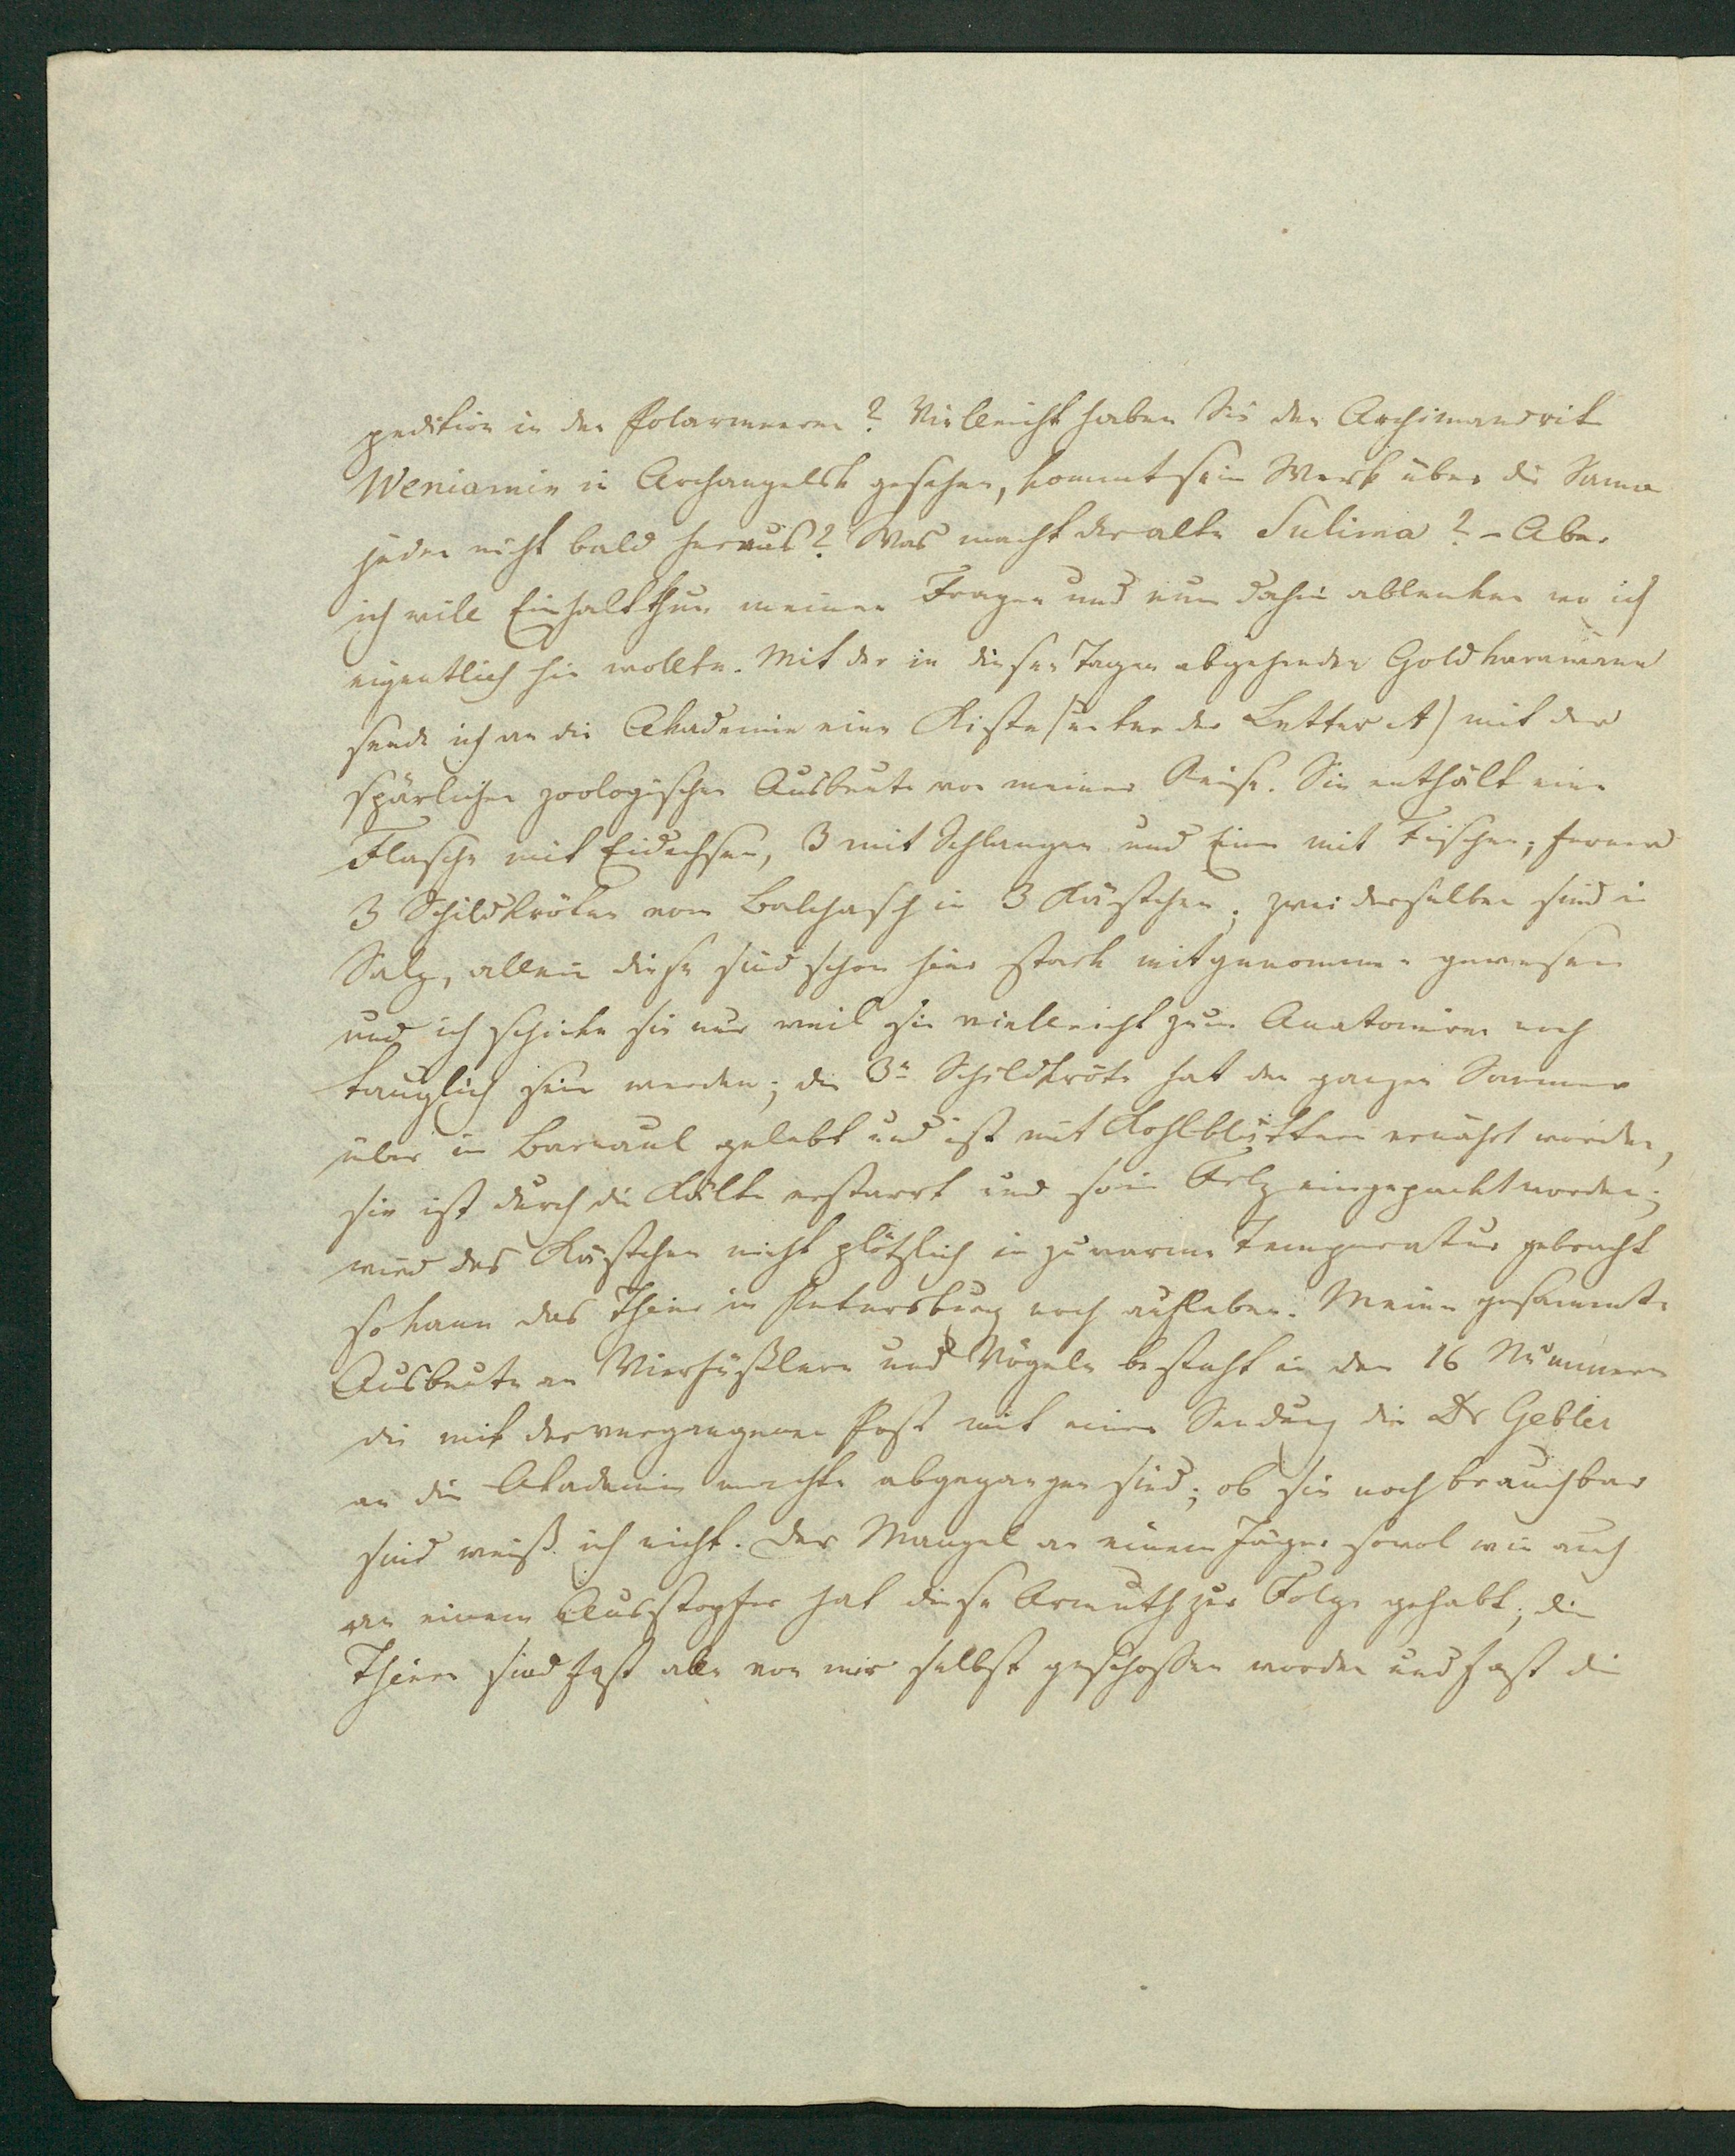 pedition in den Polarmeeren? Vielleicht haben Sie den Archimandrit
Weniamin in Archangelsk gesehen, kommt sein Werk über die Samo
jeden nicht bald heraus? Was macht der alte Sulima? – Aber
ich will Einhalt thun meinen Fragen und nun dahin ablenken wo ich
eigentlich hin wollte. Mit der in diesen Tagen abgehenden Goldkarawane
sende ich an die Akademie eine Kiste (unter der Letter A) mit der
spärlichen zoologischen Ausbeute von meiner Reise. Sie enthält eine
Flasche mit Eidechsen, 3 mit Schlangen und Eine mit Fischen; ferner
3 Schildkröten vom Balchasch in 3 Kästchen; zwei derselben sind in
Salz, allein diese sind schon hier stark mitgenommen gewesen
und ich schicke sie nur weil sie vielleicht zum Anatomiren noch
tauglich sein werden; die 3e Schildkröte hat den ganzen Sommer
über in Barnaul gelebt und ist mit Kohlblättern ernährt worden,
sie ist durch die Kälte erstarrt und so in Pelz eingepackt worden;
wird das Kästchen nicht plötzlich in zu warme Temperatur gebracht
so kann das Thier in Petersburg noch aufleben. Meine gesammte
Ausbeute an Vierfüßlern und Vögeln besteht in den 16 Nummern
die mit der vergangenen Post mit einer Sendung die Dr Gebler
an die Akademie machte abgegangen sind; ob sie noch brauchbar
sind weiß ich nicht. Der Mangel an einem Jäger sowol wie auch
an einem Ausstopfer hat diese Armuth zur Folge gehabt; die
Thiere sind fast alle von mir selbst geschossen worden und fast die